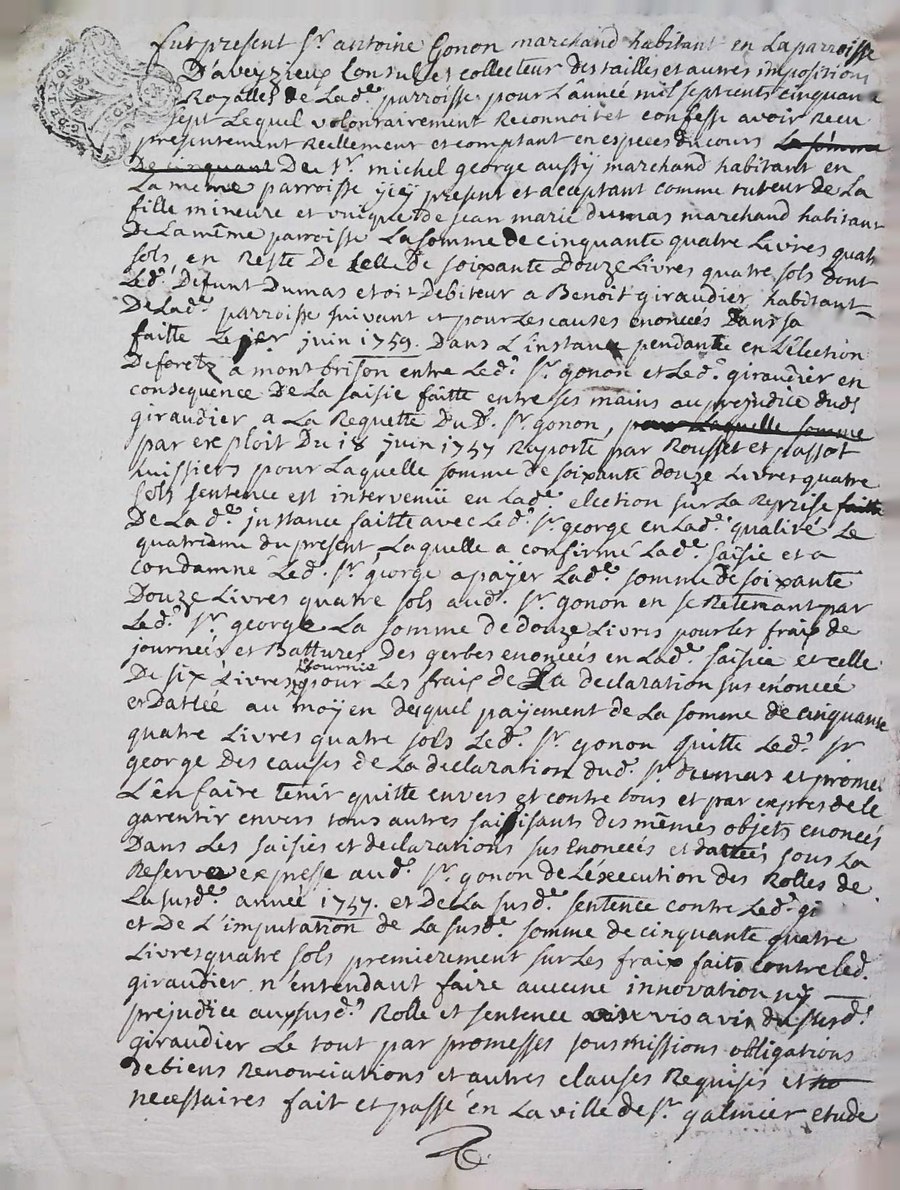 fut present Sr. antoine Gonon marchand habitant en La parroisse
D'aveyzieux Consul et collecteur des tailles et autres impositions
Royalles de Lade. parroisse pour L'année mil sept cents cinquante
sept Lequel volontairement Reconnoit et confesse avoir Recu
presentement Reellement et comptant en especes du cours La somme
De cinquant De Sr. michel george aussy marchand habitant en
La meme parroisse icy present et acceptant comme tuteur de La
fille mineure et unique de jean marie Dumas marchand habitant
De La même parroisse La somme de cinquante quatre Livres quatre
sols, en Reste De Celle de soixante Douze Livres quatre sols dont
Led. Defunt Dumas etoit Debiteur a Benoit giraudier habitant
De Lade. parroisse suivant et pour Les causes enoncées Dans sa
faitte Le 1er juin 1759. Dans L'instance pendante en L'élection
De foretz a montbrison entre Led. Sr. gonon et Led. giraudier en
consequence De La saisie faitte entre ses mains au prejudice dud.
giraudier a La Requette Dud. Sr. gonon, pour Laquelle somme
par exploit Du 18 juin 1757 Raporté par Rousset et passot
huissiers pour Laquelle somme de soixante douze Livres quatre
sols sentence est intervenüe en Lade. election sur La Reprise faitte
De Lade. instance faitte avec Led. Sr. george en Lade. qualité Le
quatrieme du present Laquelle a confirmé Lade. saisie et a
condamné Led. Sr. george a payer Lade. somme de soixante
Douze Livres quatre sols aud. Sr. gonon en se Retenant par
Led. Sr. george La somme de douze Livres pour les fraix de
journées et Battures Des gerbes enoncées en Lade. saisie et celle
De six Livres fournie pour Les fraix de La declaration sus enoncée
et Dattée au moyen duquel payement de La somme de cinquante
quatre Livres quatre sols Led. Sr. gonon quitte Led. Sr
george des causes de La declaration dud. Sr. Dumas et promet
L'en faire tenir quitte envers et contre tous et par expres de le
garentir envers tous autres saisisants des mêmes objets enoncés
Dans Les saisies et declarations sus Enoncées et dattées sous La
Reserve expresse aud. Sr. gonon de L'éxecution des Rolles de
La susde. année 1757. et De La susde. sentence contre Led. gi
et De L'imputation de La susde. somme de cinquante quatre
Livres quatre sols premierement sur Les fraix faits contre led.
giraudier n'entendant faire aucune innovation ny
prejudice aux susd. Rolle et sentence vis a vis du susd.
giraudier Le tout par promesses soumissions obligations
de biens Renonciations et autres clauses Requises et no
necessaires fait et passé en La ville de St. galmier etude